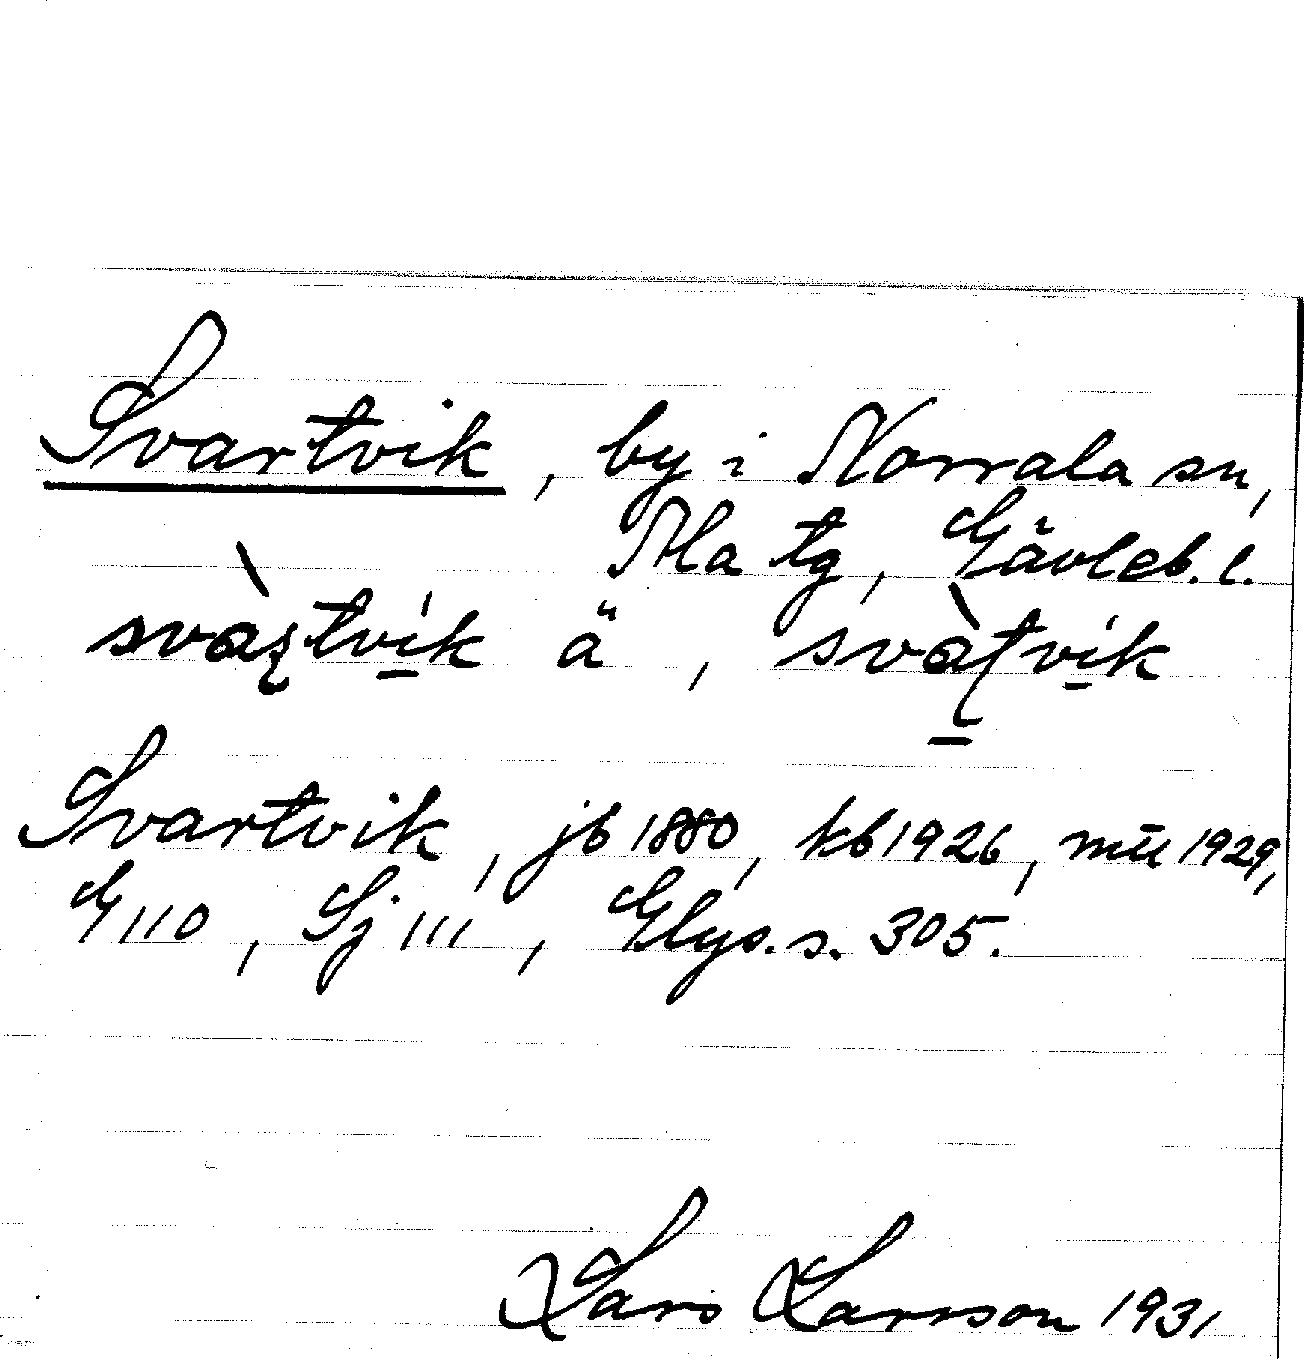 Svartvik, by i Norrala sn,
Ala tg, Gävleb. l.
svàʂtvík ä, svàʈvík
Svartvik, jb 1880, kb 1926, mtl 1929,
G 110, Sj 111, Glys. s. 305.
Lars Larsson 1931